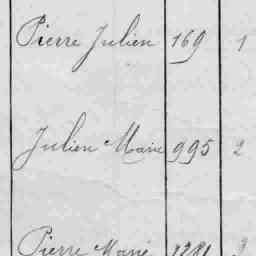 Pierre Julien 169 1
Julien Marie 995 2
Pierre Marie 3